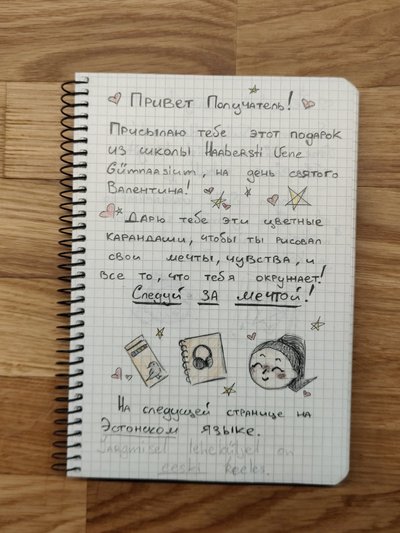 Привет Получатель!
Присылаю тебе этот подарок
из школы Haabersti Vene
Gümnaasium, на день святого
Валентина!
Дарю тебе эти цветные
карандаши, чтобы ты рисовал
свои мечты, чувства, и
все то, что тебя окружает!
Следуй за мечтой!
На следущей странице на
Эстонском языке.
Järgmisel leheküljel on
eesti keeles.